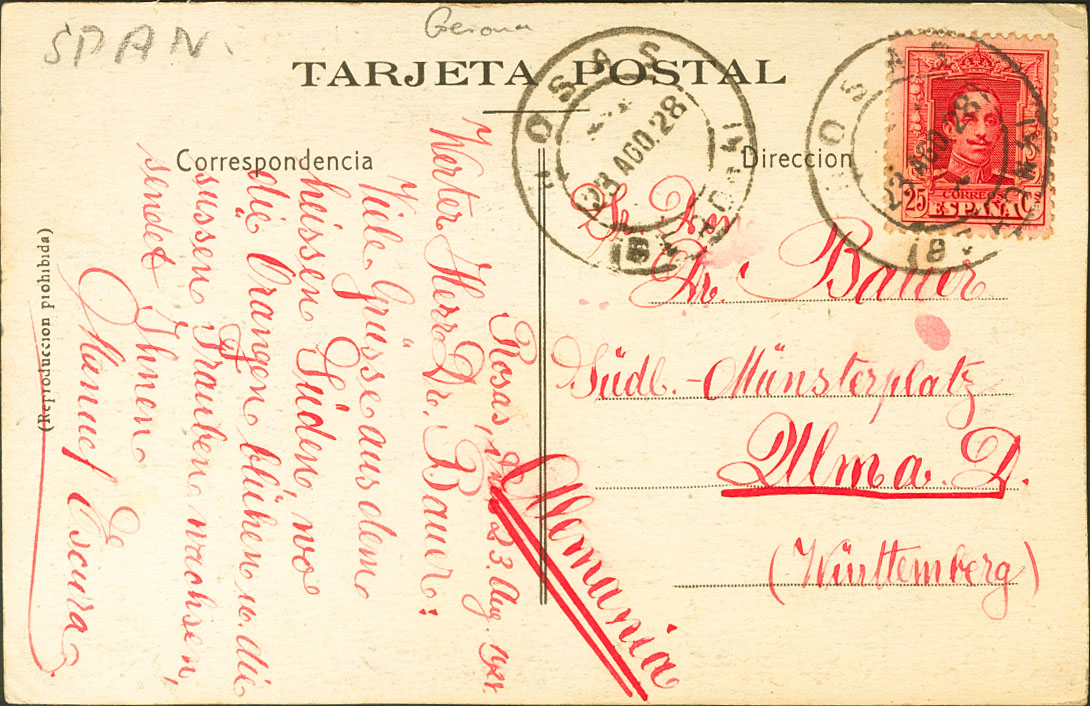 SPAN.
Gerona
TARJETA POSTAL
Correspondencia
Direccion
ROSAS
23 AGO.28
ROSAS
23 AGO.28
25 CORREOS Cs
ESPAÑA
(Reproduccion prohibida)
Rosas, 23. Aug. 1928.
Werter Herr Dr. Bauer:
Viele Grüsse aus dem
heissen Süden, wo
die Orangen blühen u. die
süssen Trauben wachsen,
sendet Ihnen
Manuel Escura
Sr. Don
Dr. Bauer
Südl.-Münsterplatz
Ulm a. D.
(Württemberg)
Alemania